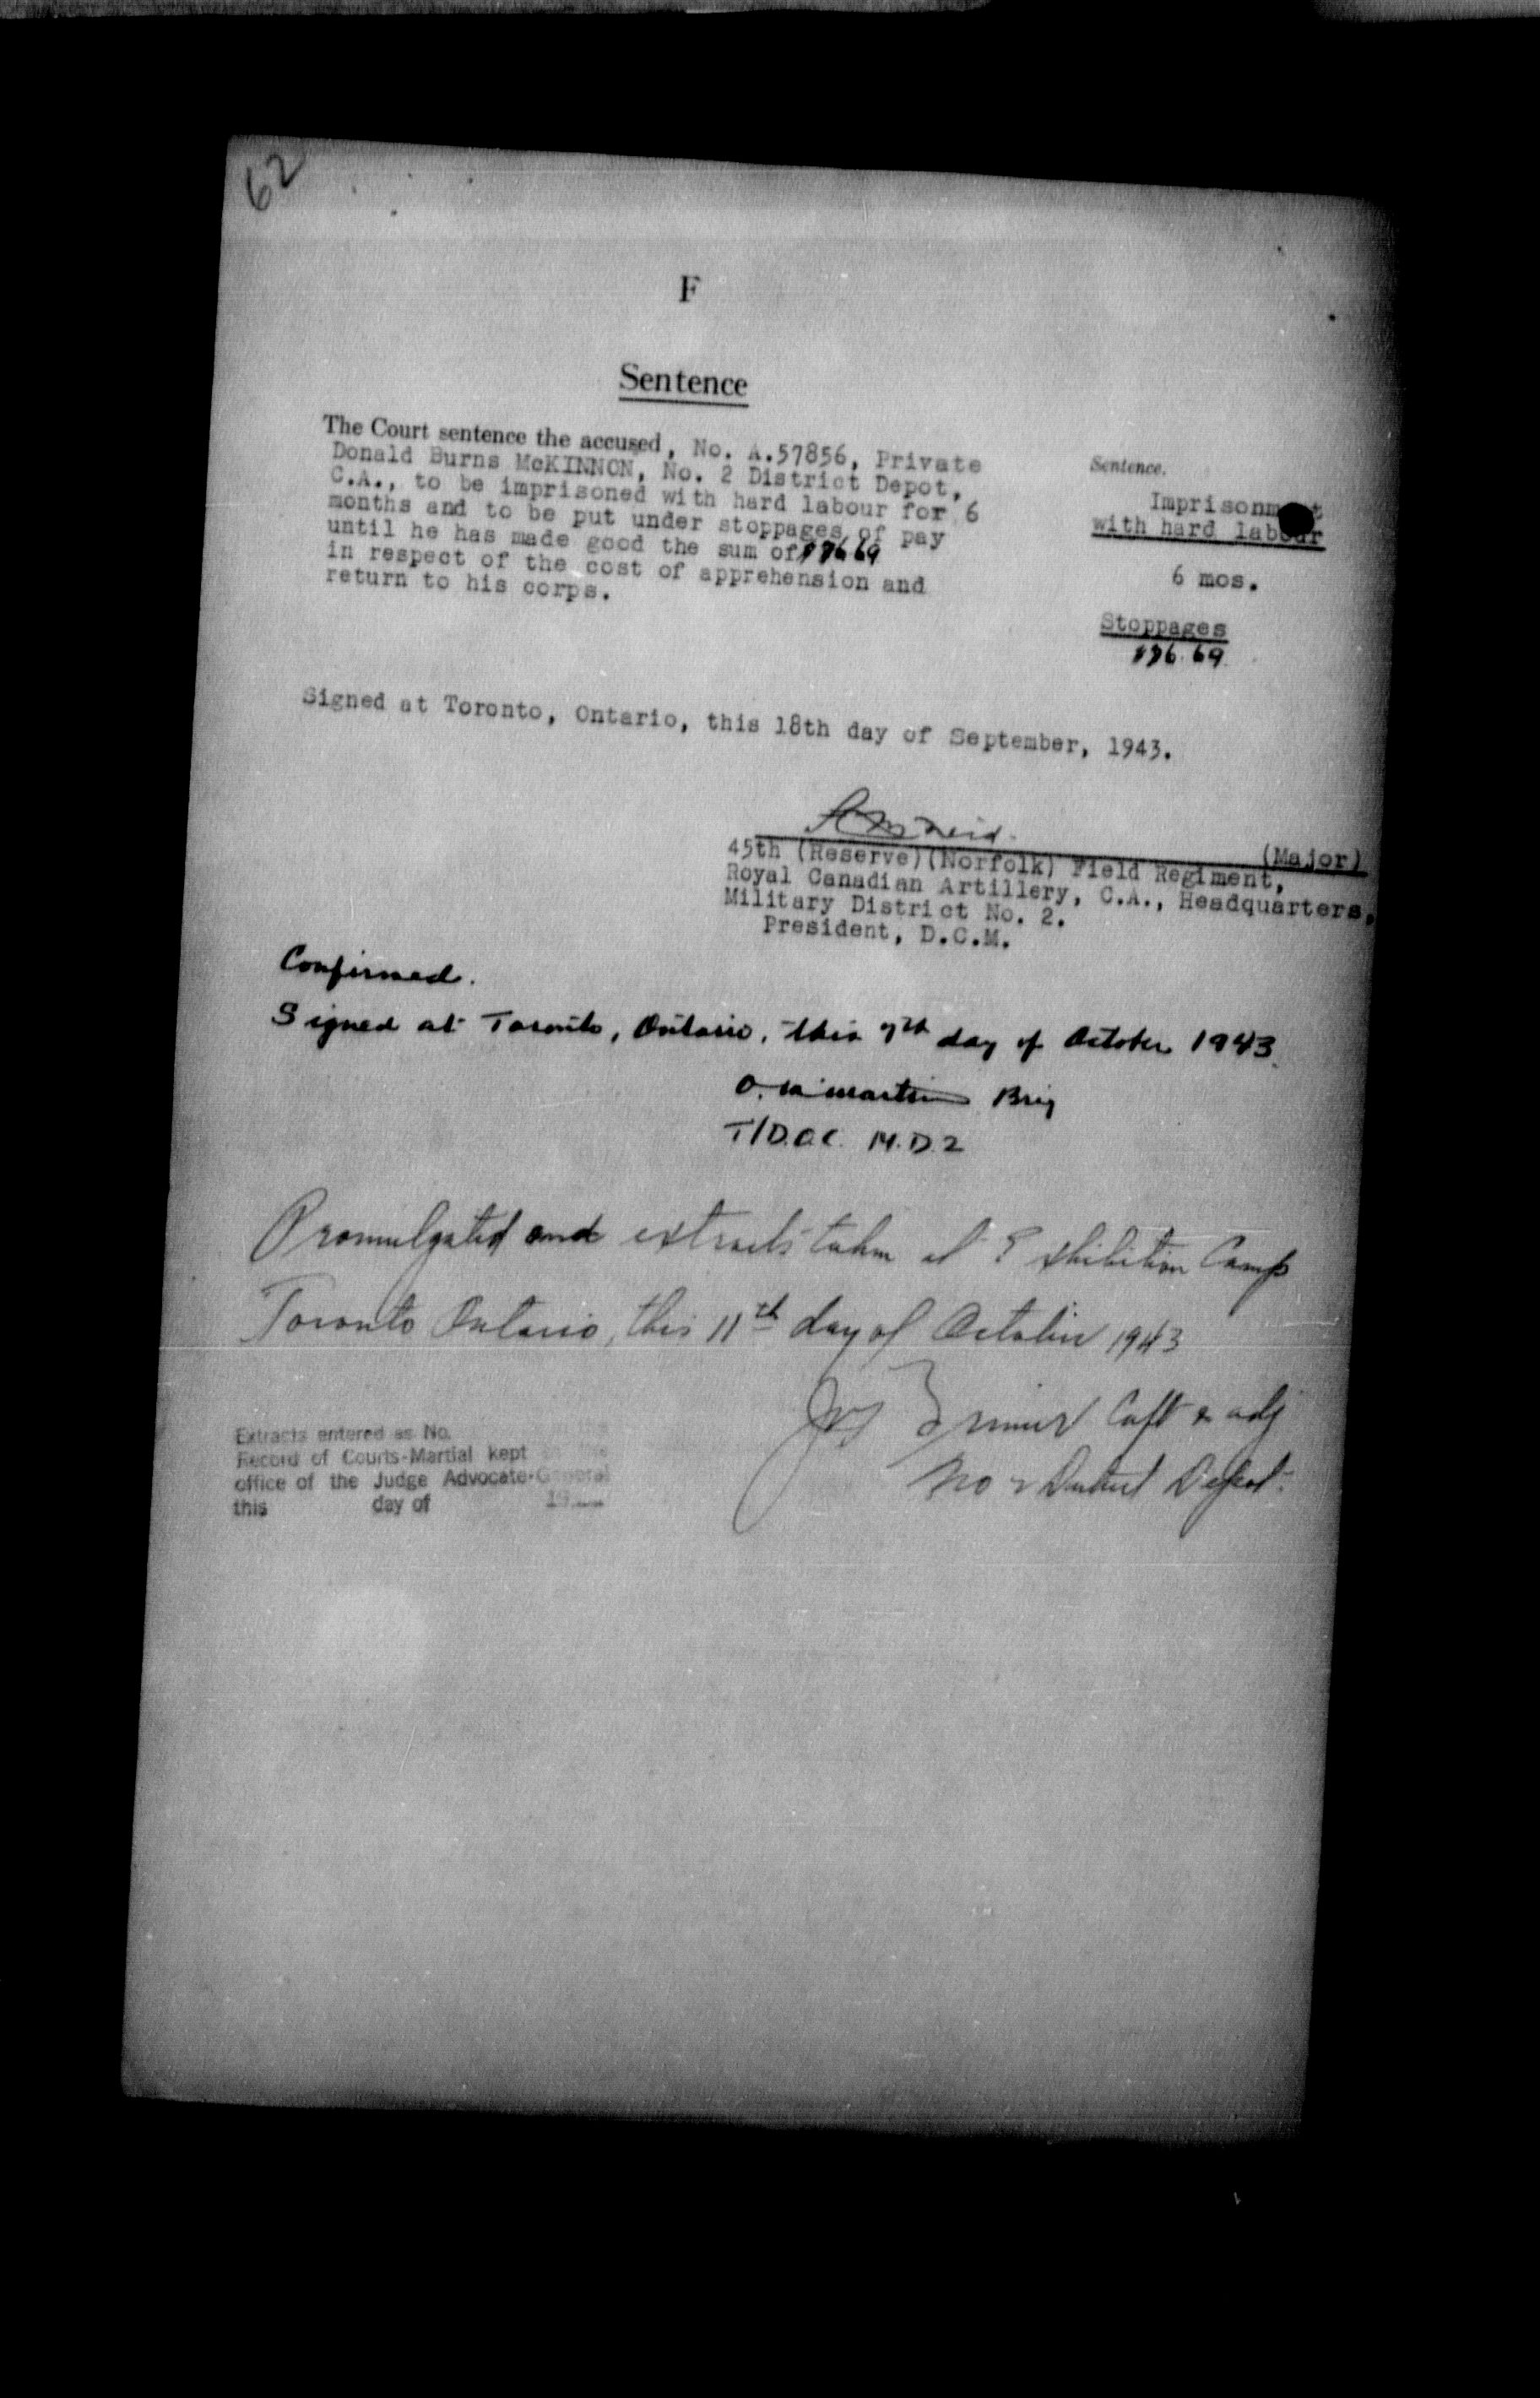 62
F
Sentence
The Court sentence the accused, No. A.57856, Private
Donald Burns McKINNON, No. 2 District Depot,
C.A., to be imprisoned with hard labour for 6
months and to be put under stoppages of pay
until he has made good the sum of
in respect of the cost of apprehension and
return to his corps.
Sentence.
Imprisonment
with hard labour
6 mos.
Stoppages
Signed at Toronto, Ontario, this 18th day of September, 1943.
(Major)
45th (Reserve)(Norfolk) Field Regiment,
Royal Canadian Artillery, C.A., Headquarters,
Military District No. 2.
President, D.C.M.
Confirmed.
Signed at Toronto, Ontario, this 7th day of October 1943.
O. M. Martin Brig
T/D.O.C. M.D.2
Promulgated and extracts taken at Exhibition Camp
Toronto Ontario, this 11th day of October 1943
Capt & adj
No 2 District Depot.
Extracts entered as No. in the
Record of Courts-Martial kept in the
office of the Judge Advocate-General
this day of 19